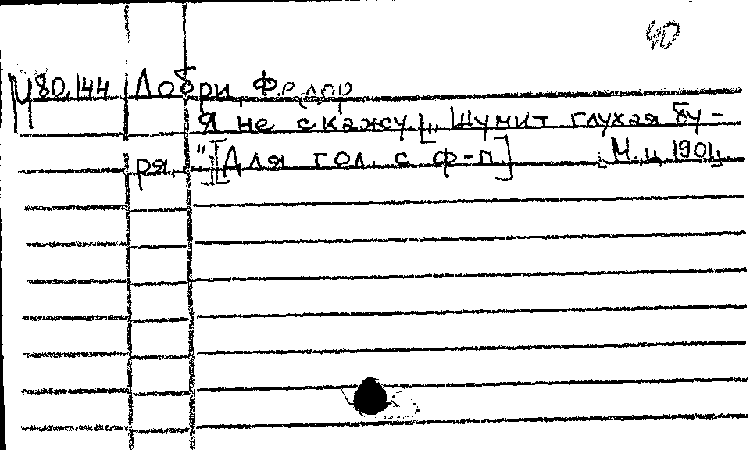 40
М80.144 Добри, Федор
Я не скажу [„Шумит глухая бу-
ря.“] [Для гол. с ф-п]   М., ц. 1904